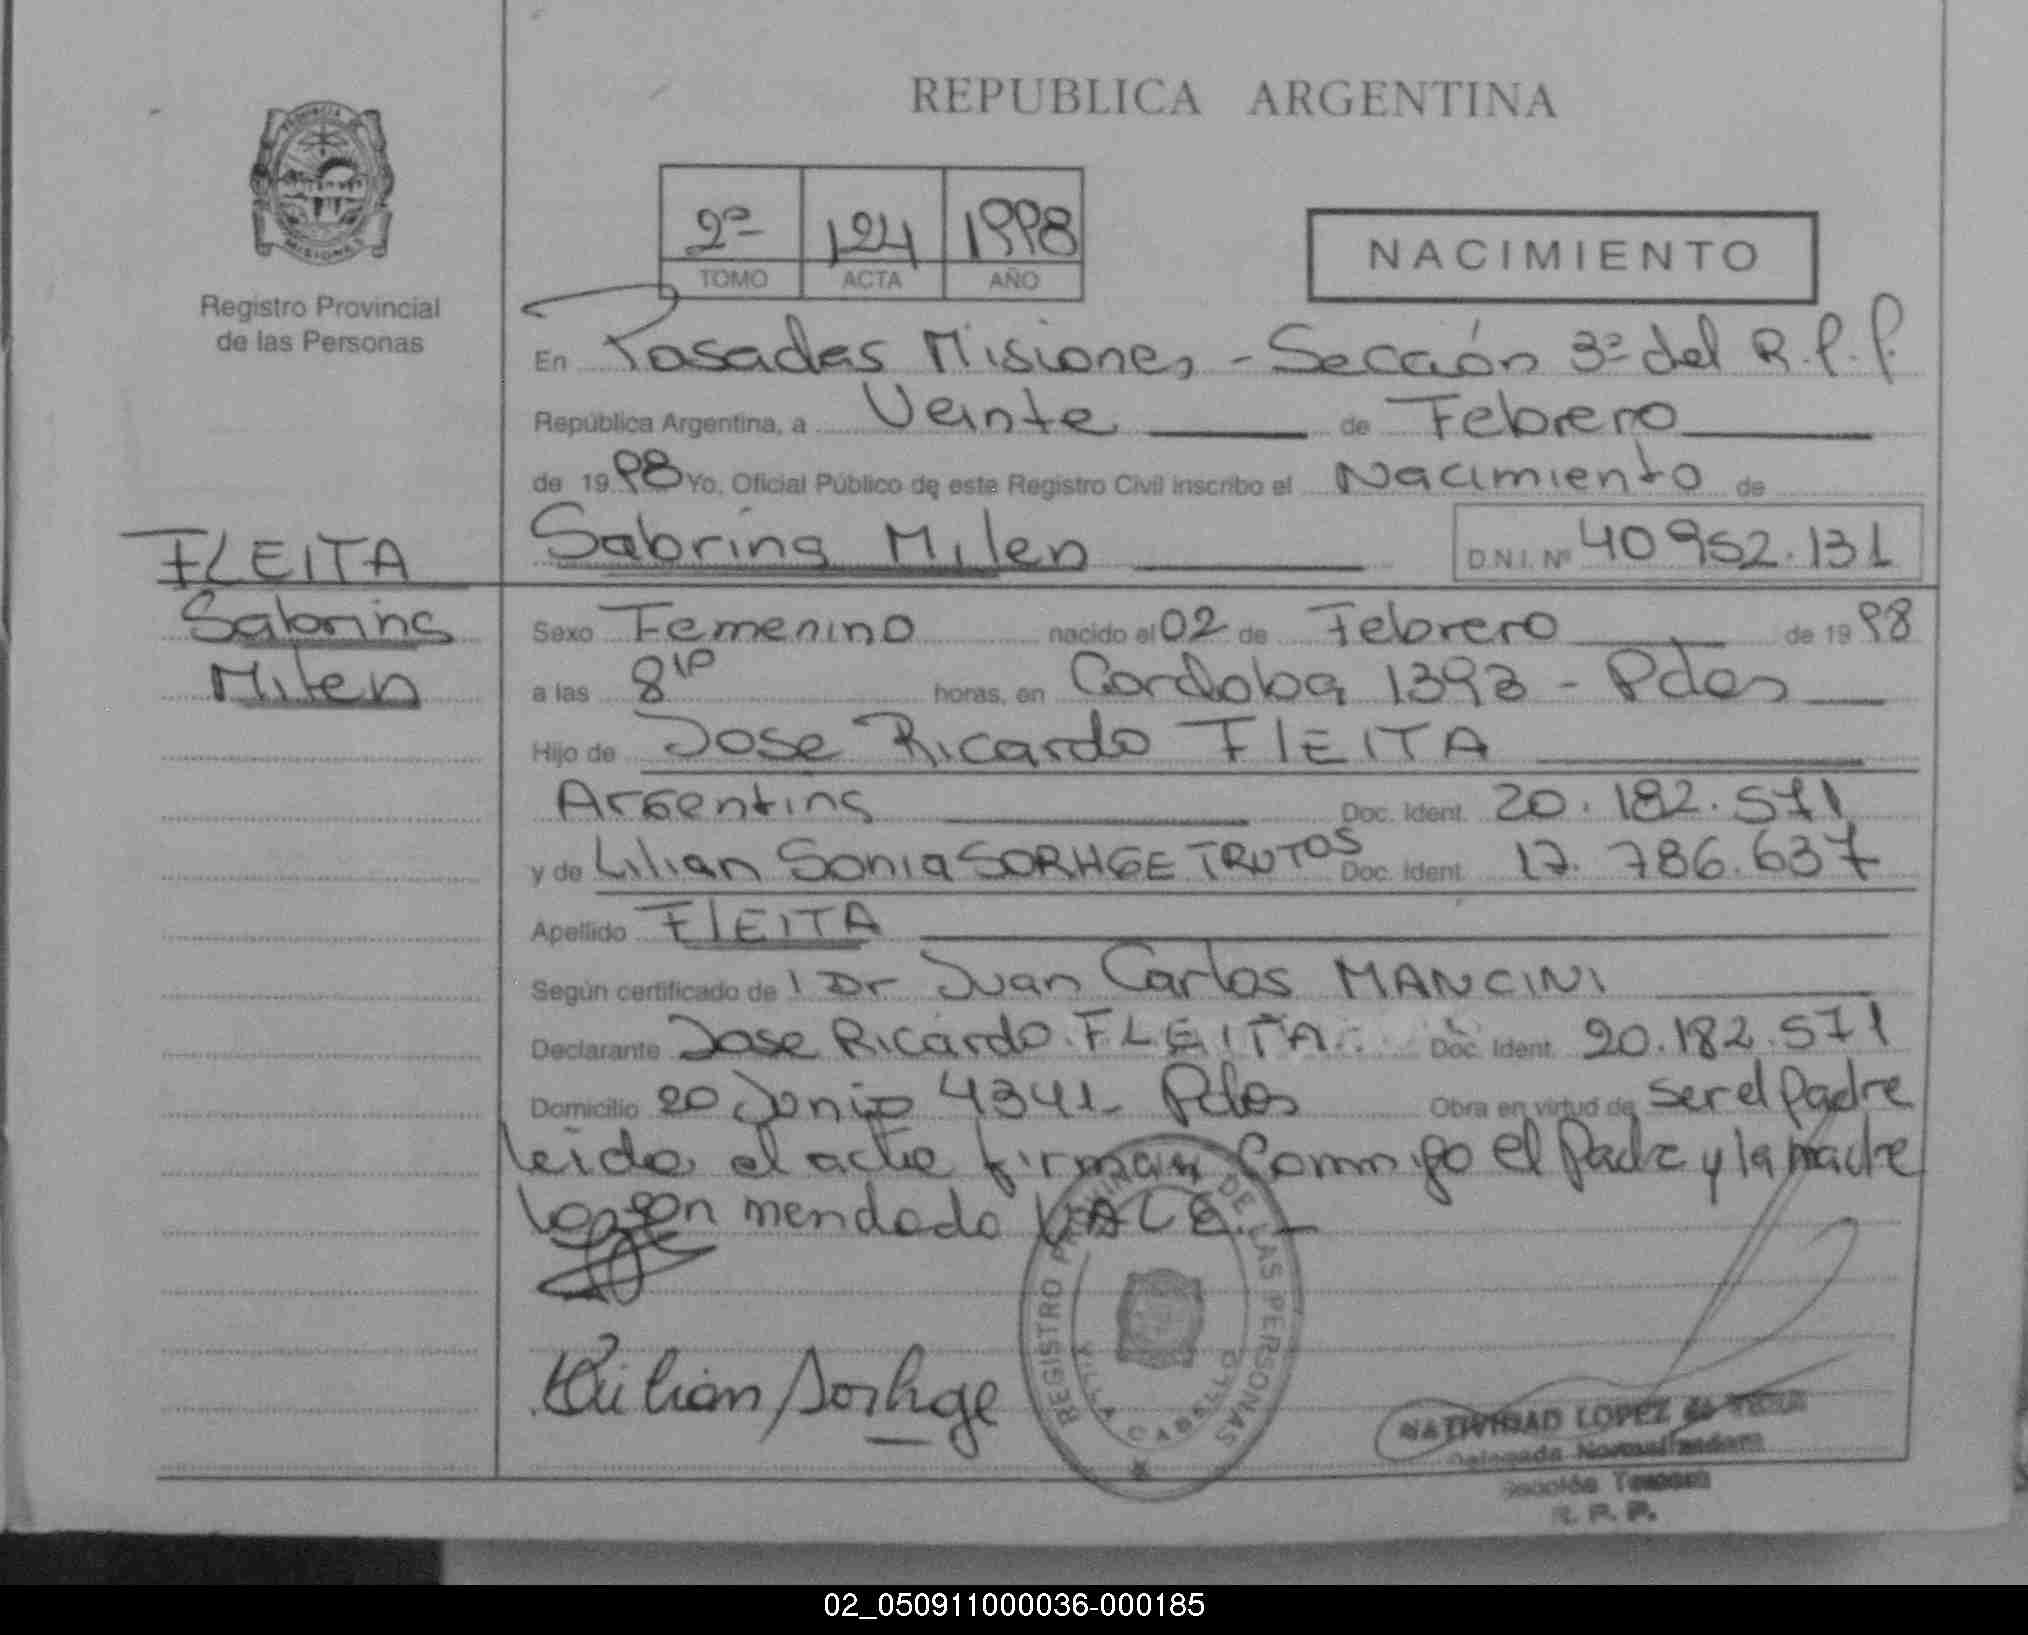 REPUBLICA ARGENTINA
PROVINCIA DE
MISIONES
Registro Provincial
de las Personas
2º 124 1998
TOMO ACTA AÑO
NACIMIENTO
En Posadas Misiones - Sección 3º del R.P.P.
República Argentina, a Veinte de Febrero
de 1998 Yo, Oficial Público de este Registro Civil inscribo el Nacimiento de
Sabrina Milen D.N.I. Nº 40952.131
FLEITA
Sabrina
Milen
Sexo Femenino nacido el 02 de Febrero de 1998
a las 8 10 horas, en Cordoba 1393 - Pdas
Hijo de Jose Ricardo FlEITA
Argentina Doc. Ident. 20.182.571
y de Lilian Sonia SORHGE TRUTOS Doc. Ident. 17.786.637
Apellido FlEITA
Según certificado de 1 Dr Juan Carlos MANCINI
Declarante Jose Ricardo FLEITA Doc. Ident. 20.182.571
Domicilio 20 Junio 4341 - Pdas Obra en virtud de ser el padre
leida el acta firman Conmigo el Padre y la madre
lo enmendado VALE. -
Lilian Sorhge
REGISTRO PROVINCIAL DE LAS PERSONAS
VILLA CABELLO
NATIVIDAD LOPEZ de
Delegada Normalizadora
Sección Tercera
R. P. P.
02_050911000036-000185